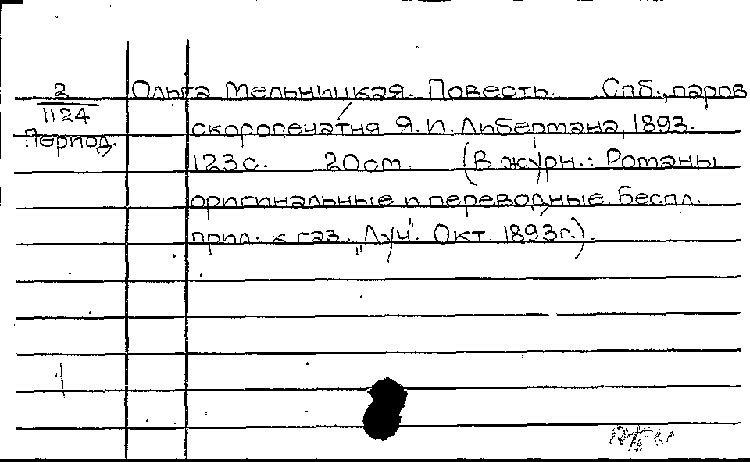 2 Ольга Мельницкая. Повесть. Спб., паров
1124 скоропечатня Я. И. Либермана, 1893.
Период. 123 с. 20 см. (В журн.: Романы
оригинальные и переводные. Беспл.
прил. к газ. „Луч“. Окт. 1893 г.).